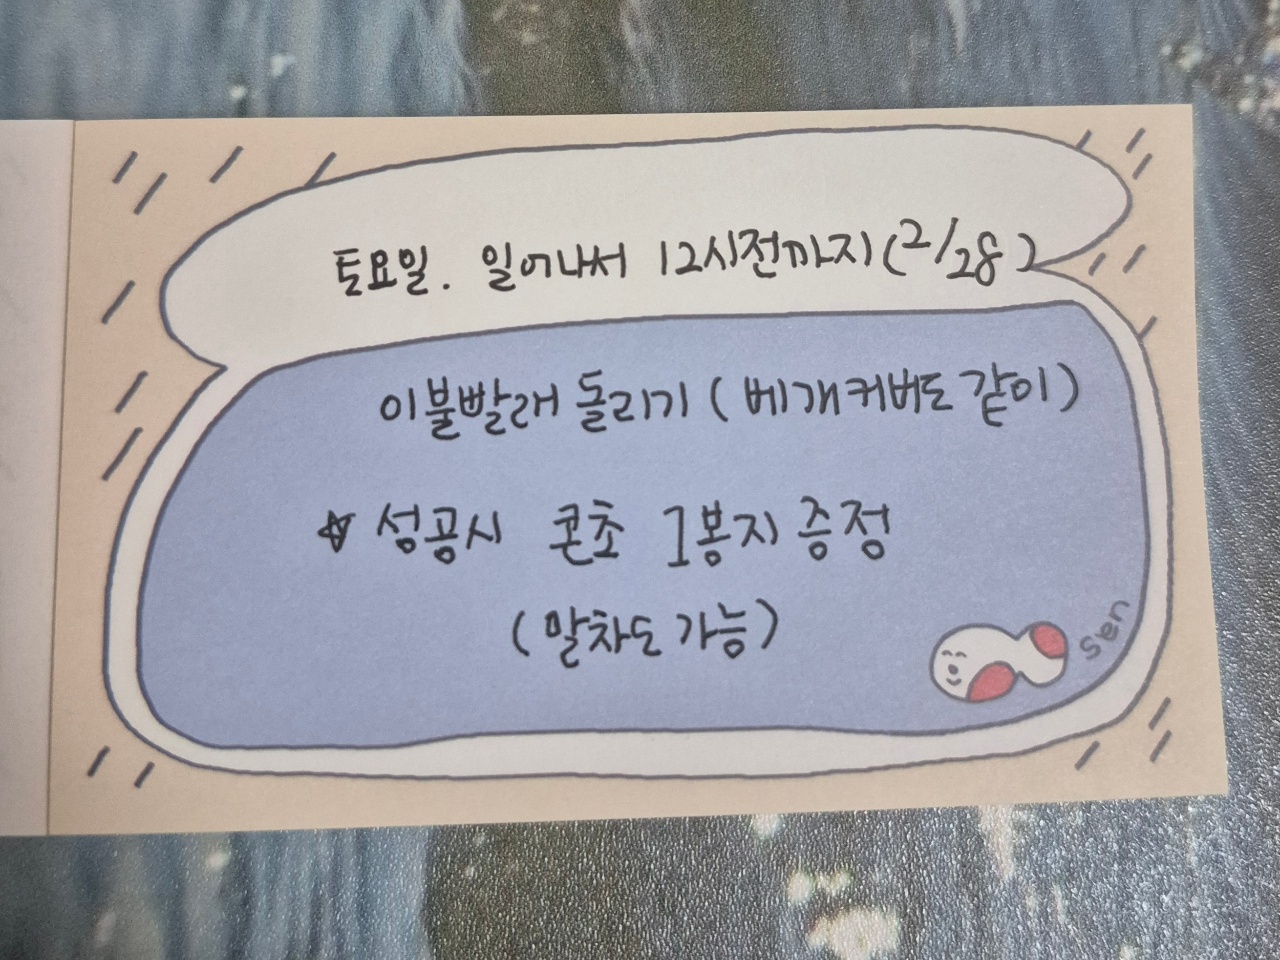 토요일. 일어나서 12시전까지(2/28)
이불빨래 돌리기 (베개커버도 같이)
☆ 성공시 콘초 1봉지 증정
(말차도 가능)
sen